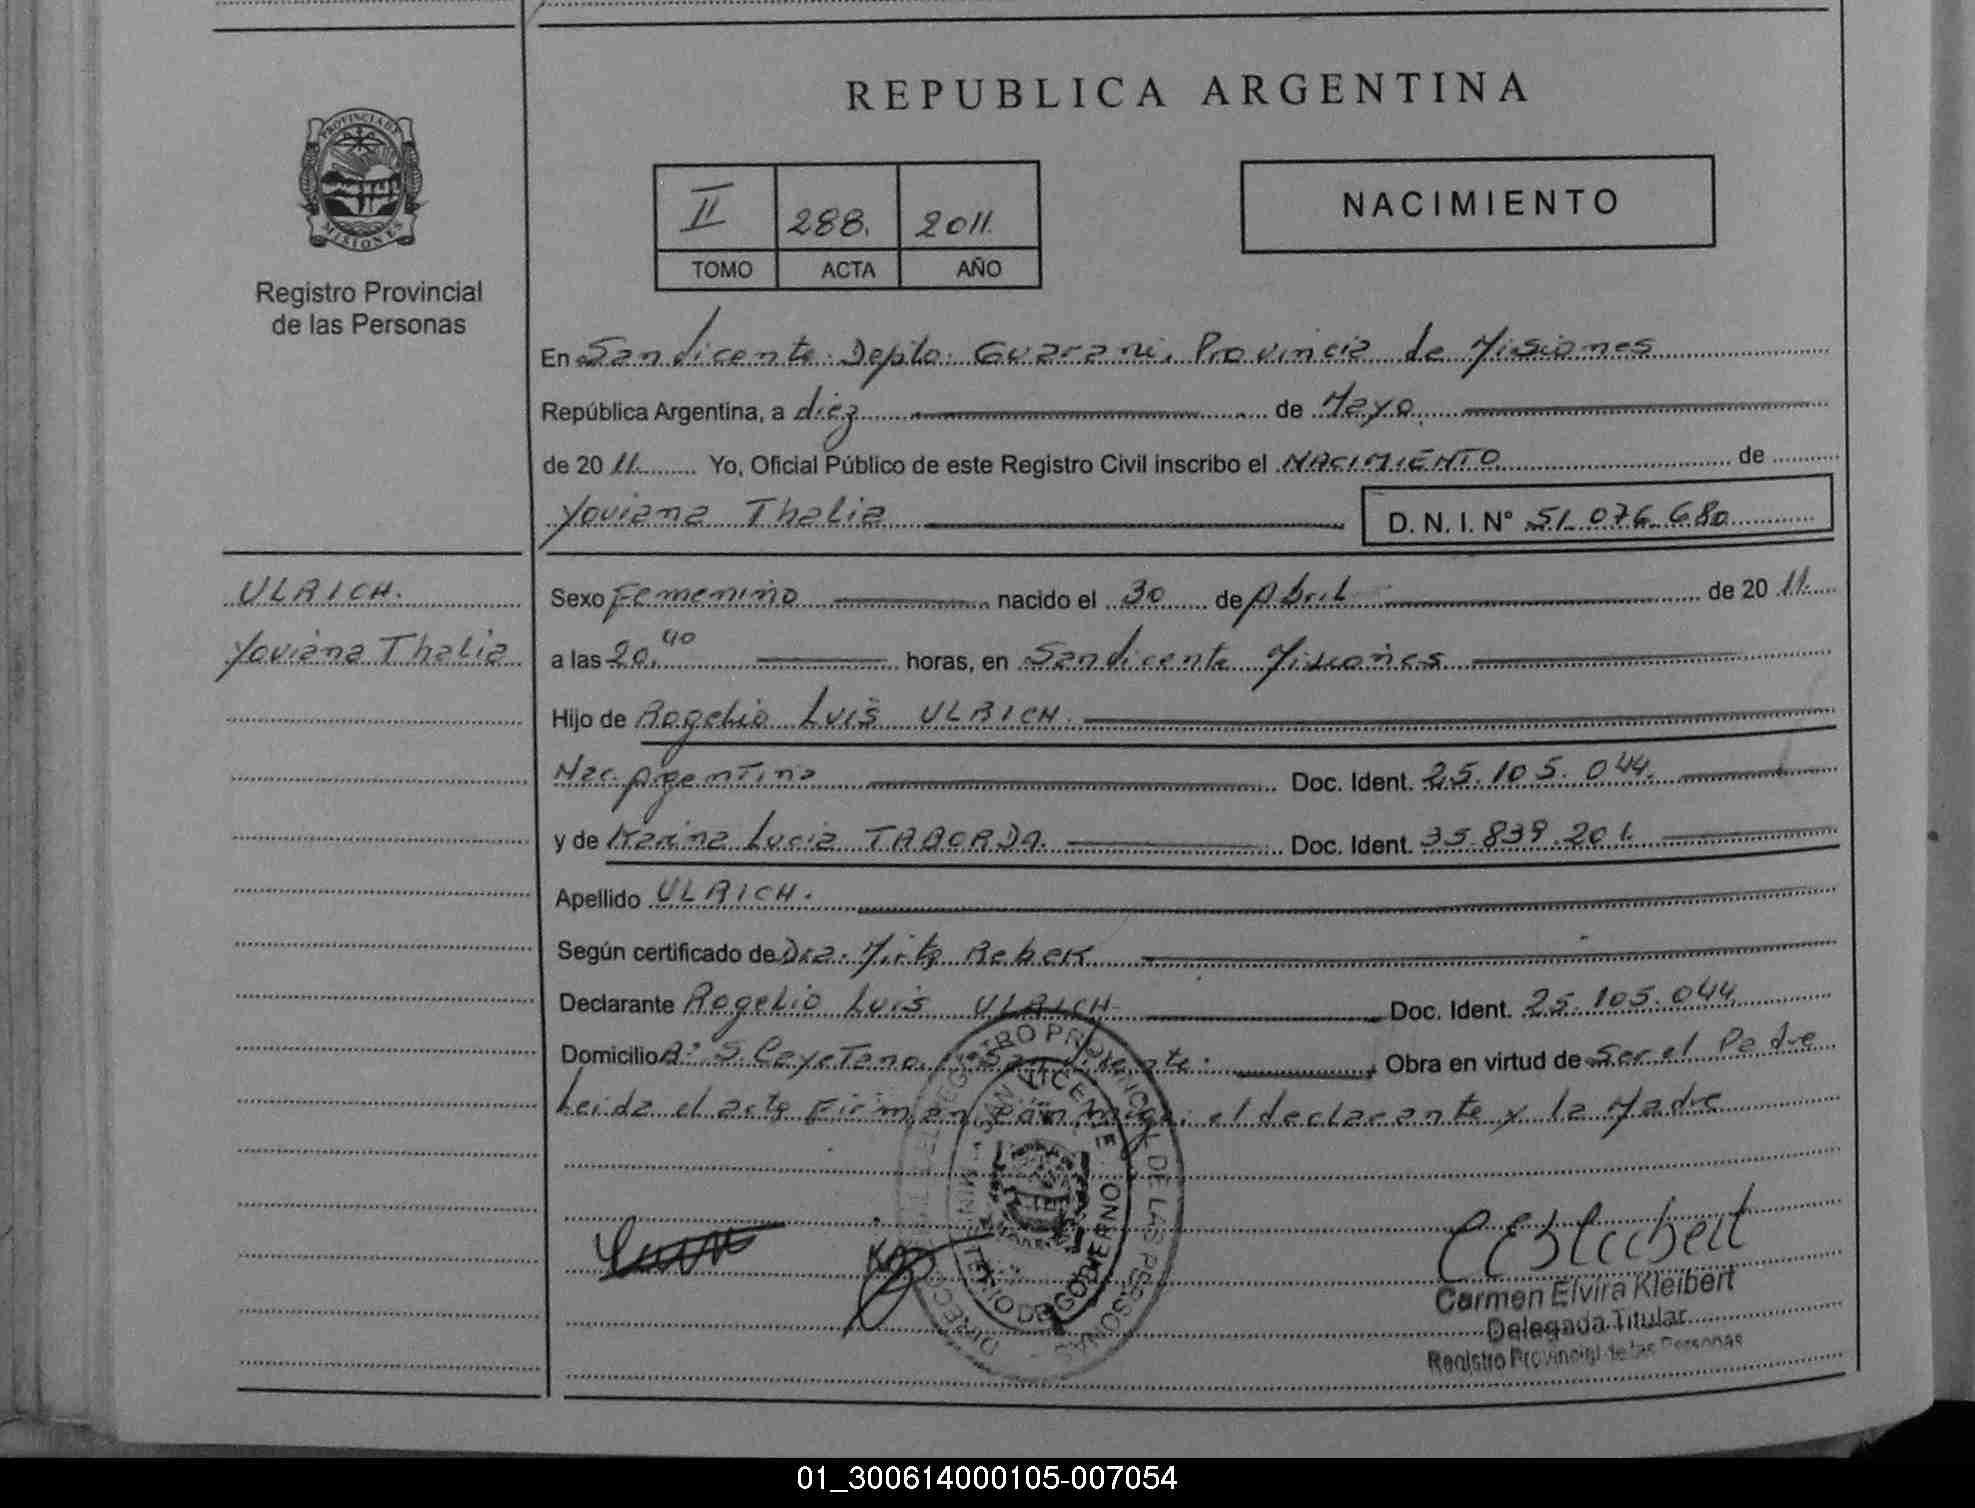 REPUBLICA ARGENTINA
PROVINCIA DE
MISIONES
Registro Provincial
de las Personas
II 288. 2011.
TOMO ACTA AÑO
NACIMIENTO
En San Vicente. Depto. Guarani. Provincia de Misiones
República Argentina, a diez de Mayo
de 2011. Yo, Oficial Público de este Registro Civil inscribo el NACIMIENTO de
Yoviana Thalia D. N. I. N° 51.076.680
ULRICH.
Yoviana Thalia
Sexo Femenino nacido el 30 de Abril de 2011.
a las 20,40 horas, en San Vicente Misiones
Hijo de Rogelio Luis ULRICH.
Nac. Argentina Doc. Ident. 25.105.044.
y de Karina Lucia TABORDA. Doc. Ident. 35.839.201.
Apellido ULRICH.
Según certificado de Dra. Mirta Reber
Declarante Rogelio Luis ULRICH Doc. Ident. 25.105.044
Domicilio B° S. Cayetano. San Vicente. Obra en virtud de Ser el Padre
Leida el acta Firman con migo, el declarante y la Madre
DIRECCION REGISTRO PROVINCIAL DE LAS PERSONAS
SAN VICENTE
MINISTERIO DE GOBIERNO
Carmen Elvira Kleibert
Delegada Titular
Registro Provincial de las Personas
01_300614000105-007054